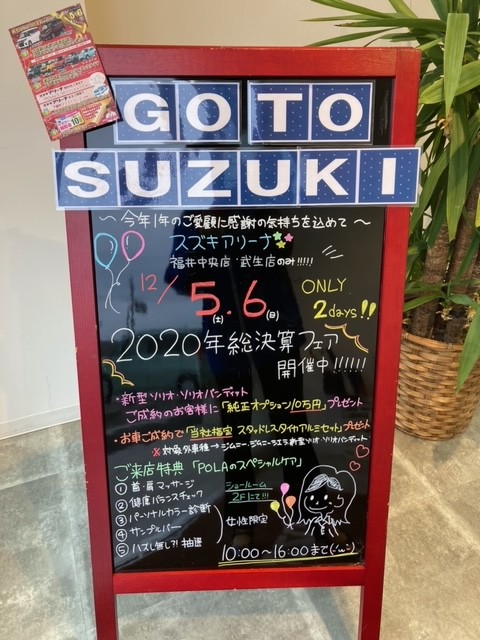 GO TO
SUZUKI
～今年1年のご愛顧に感謝の気持ちを込めて～
スズキアリーナ
福井中央店・武生店のみ!!!!!
12/5(土).6(日)
ONLY
2days!!
2020年総決算フェア
開催中!!!!!!
・新型ソリオ・ソリオバンディット
ご成約のお客様に「純正オプション10万円」プレゼント
・お車ご成約で「当社指定 スタッドレスタイヤアルミセット」プレゼント
※対象外車種→ジムニー・ジムニーシエラ・新型ソリオ・ソリオバンディット
ご来店特典「POLAのスペシャルケア」
① 首・肩マッサージ
② 健康バランスチェック
③ パーソナルカラー診断
④ サンプルバー
⑤ ハズレ無し?! 抽選
ショールーム
2Fにて!!!
女性限定
10:00～16:00まで(・ω・)